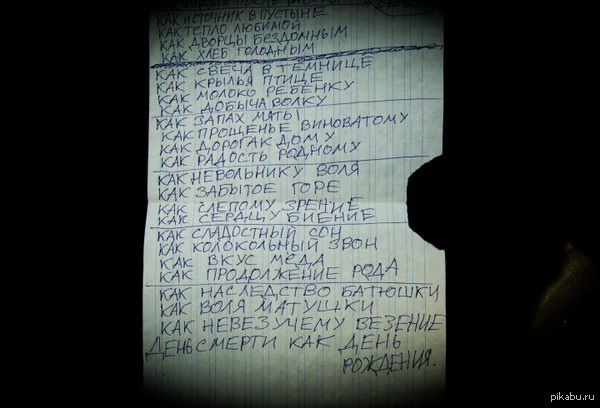 КАК ИСТОЧНИК В ПУСТЫНЕ
КАК ТЕПЛО ЛЮБИМОЙ
КАК ДВОРЦЫ БЕЗДОМНЫМ
КАК ХЛЕБ ГОЛОДНЫМ
КАК СВЕЧА В ТЕМНИЦЕ
КАК КРЫЛЬЯ ПТИЦЕ
КАК МОЛОКО РЕБЕНКУ
КАК ДОБЫЧА ВОЛКУ
КАК ЗАПАХ МЯТЫ
КАК ПРОЩЕНЬЕ ВИНОВАТОМУ
КАК ДОРОГА К ДОМУ
КАК РАДОСТЬ РОДНОМУ
КАК НЕВОЛЬНИКУ ВОЛЯ
КАК ЗАБЫТОЕ ГОРЕ
КАК СЛЕПОМУ ЗРЕНИЕ
КАК СЕРДЦУ БИЕНИЕ
КАК СЛАДОСТНЫЙ СОН
КАК КОЛОКОЛЬНЫЙ ЗВОН
КАК ВКУС МЕДА
КАК ПРОДОЛЖЕНИЕ РОДА
КАК НАСЛЕДСТВО БАТЮШКИ
КАК ВОЛЯ МАТУШКИ
КАК НЕВЕЗУЧЕМУ ВЕЗЕНИЕ
ДЕНЬ СМЕРТИ КАК ДЕНЬ
РОЖДЕНИЯ.
pikabu.ru